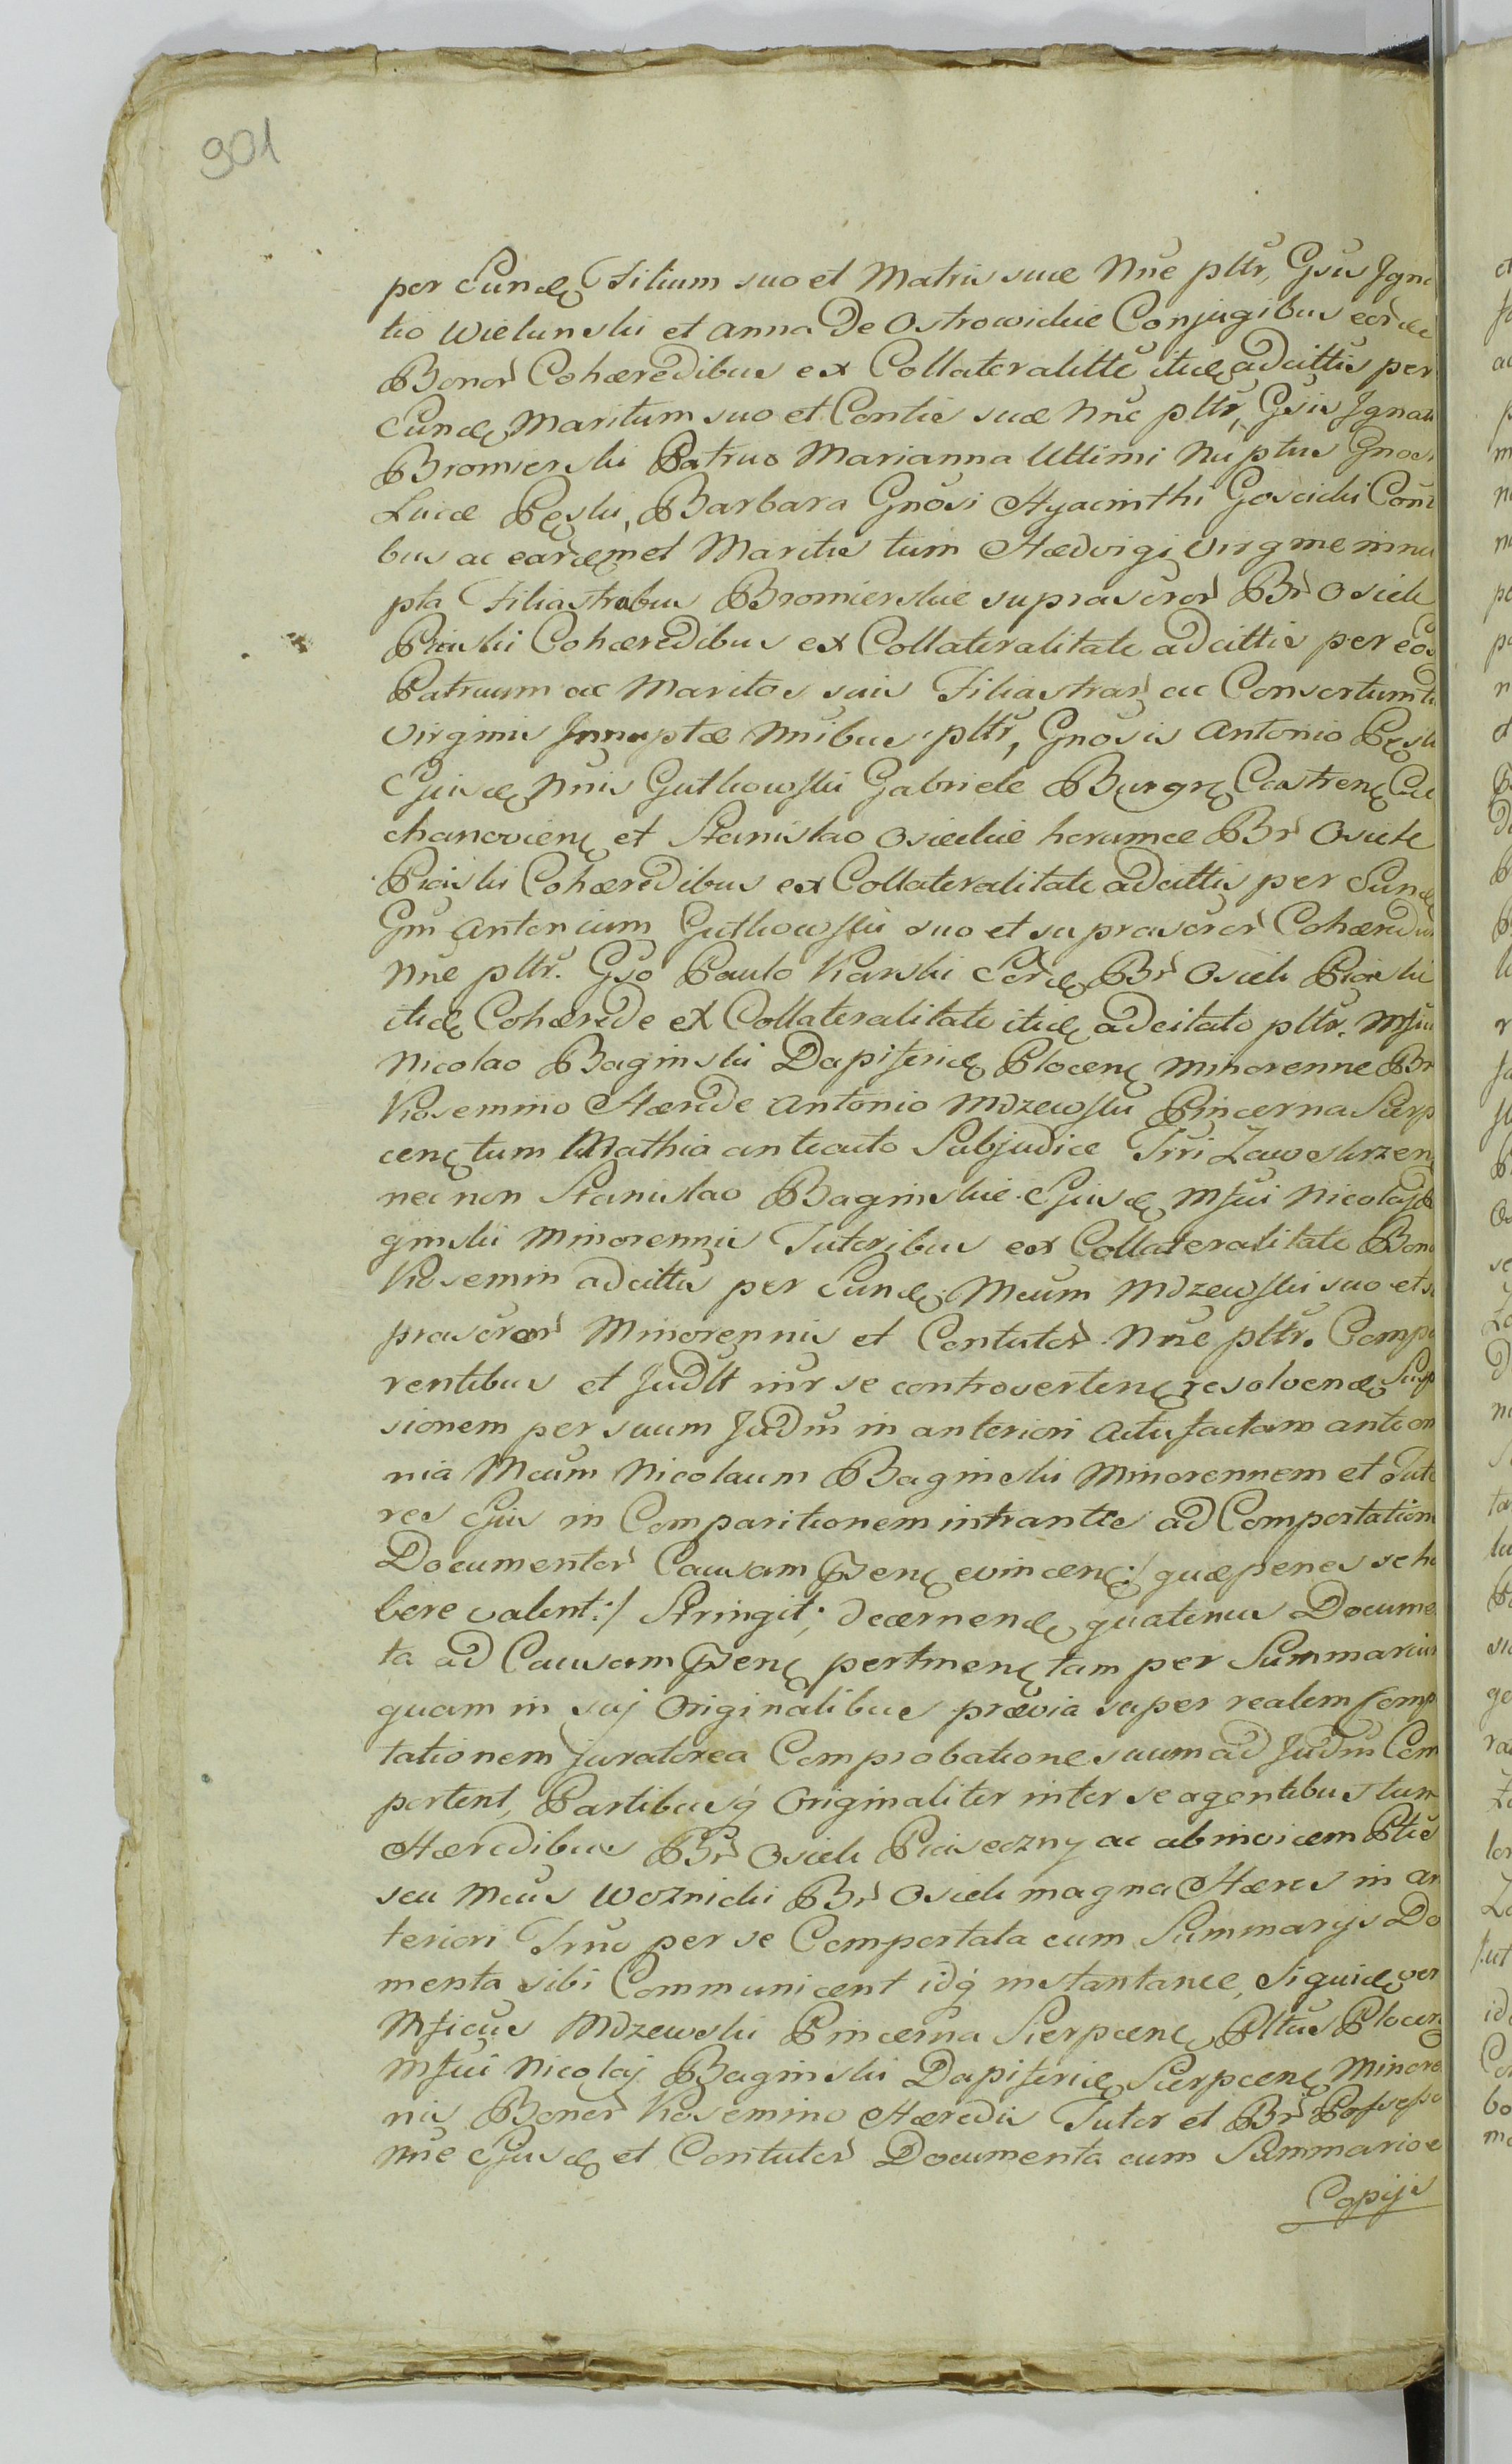 901
per Eund. Filium suo et Matris suae Nne pltr, Gsis Igna
tio Wielunski et Anna De Ostrowickie Conjugibus eord.
Bonor Cohæredibus ex Collateralitte itid. adcittis per
Eund. Maritum suo et Contis suæ Nne pltr, Gsis Ignati
Bromierski Patruo Marianna Ultimi Nuptus Gnosi
Lucæ Pęski, Barbara Gnosi Hyacinthi Goscicki Coni
bus ac eardemet Maritis tum Hædvigi Virgine innu
pta Filiastrabus Bromierskie suprascror Br Osiek
Piaski Cohæredibus ex Collateralitate adcittis per eosd
Patruum ac Maritos suis Filiastrar ac Consortum
Virginis Innuptæ Nnibus pltr, Gnosis Antonio Pęski
Ejusd. Nnis Gutkowski Gabriele Burgr. Castren. Cie
chanovien. et Stanislao Osieckie horumce Br Osiek
Piaski Cohæredibus ex Collateralitate adcittis per Eund.
Gm Antonium Gutkowski suo et suprascror Cohæredum
Nne pltr. Gso Paulo Karski Eord. Br Osiek Piaski
itid. Cohærede ex Collateralitate itid. adcitato pltr. Mfiu
Nicolao Baginski Dapiferid. Plocen. Minorenne Br
Kosemino Hærede Antonio Mdzewski Pincerna Sierp
cen. tum Mathia anteacto Subjudice Trri Zawskrzen.
nec non Stanislao Baginskie Ejusd. Mfici Nicolaj Ba
ginski Minorennis Tutoribus ex Collateralitate Bono
Kosemin adcittis per Eund. Mcum Mdzewski suo et su
prascror Minorennis et Contutor Nne pltr. Compa
rentibus et Judlt inr se controverten. resolvend. Susp
sionem per suum Judm in anteriori Actu factam ante om
nia Mcum Nicolaum Baginski Minorennem et Tuto
res Ejus in Comparitionem intrantes ad Comportation
Documentor Causam Psen. evincen. :/ quæ penes se ha
bere valent :/ Stringit; decernend. quatenus Documen
ta ad Causam Psen. pertinen. tam per Summarium
quam in suj Originalibus prævia super realem Comp
tationem juratorea Comprobatione suum ad Judm Com
portent, Partibusq Originaliter inter se agentibus tum
Hæredibus Br Osiek Piaseczny ac abinvicem Ptis
seu Mcus Woznicki Br Osiek magna Hæres in an
teriori Trno per se Comportata cum Summarijs Do
menta sibi Communicent idq instantanee, Siquid. ver
Mficus Mdzewski Pincerna Sierpcen. Pltus Plocen.
Mfici Nicolaj Baginski Dapiferid. Sierpcen. Minore
nis Bonor Kosemino Hæredis Tutor et Br Possesso
Nne Ejusd. et Contutor Documenta cum Summario e
Copijs